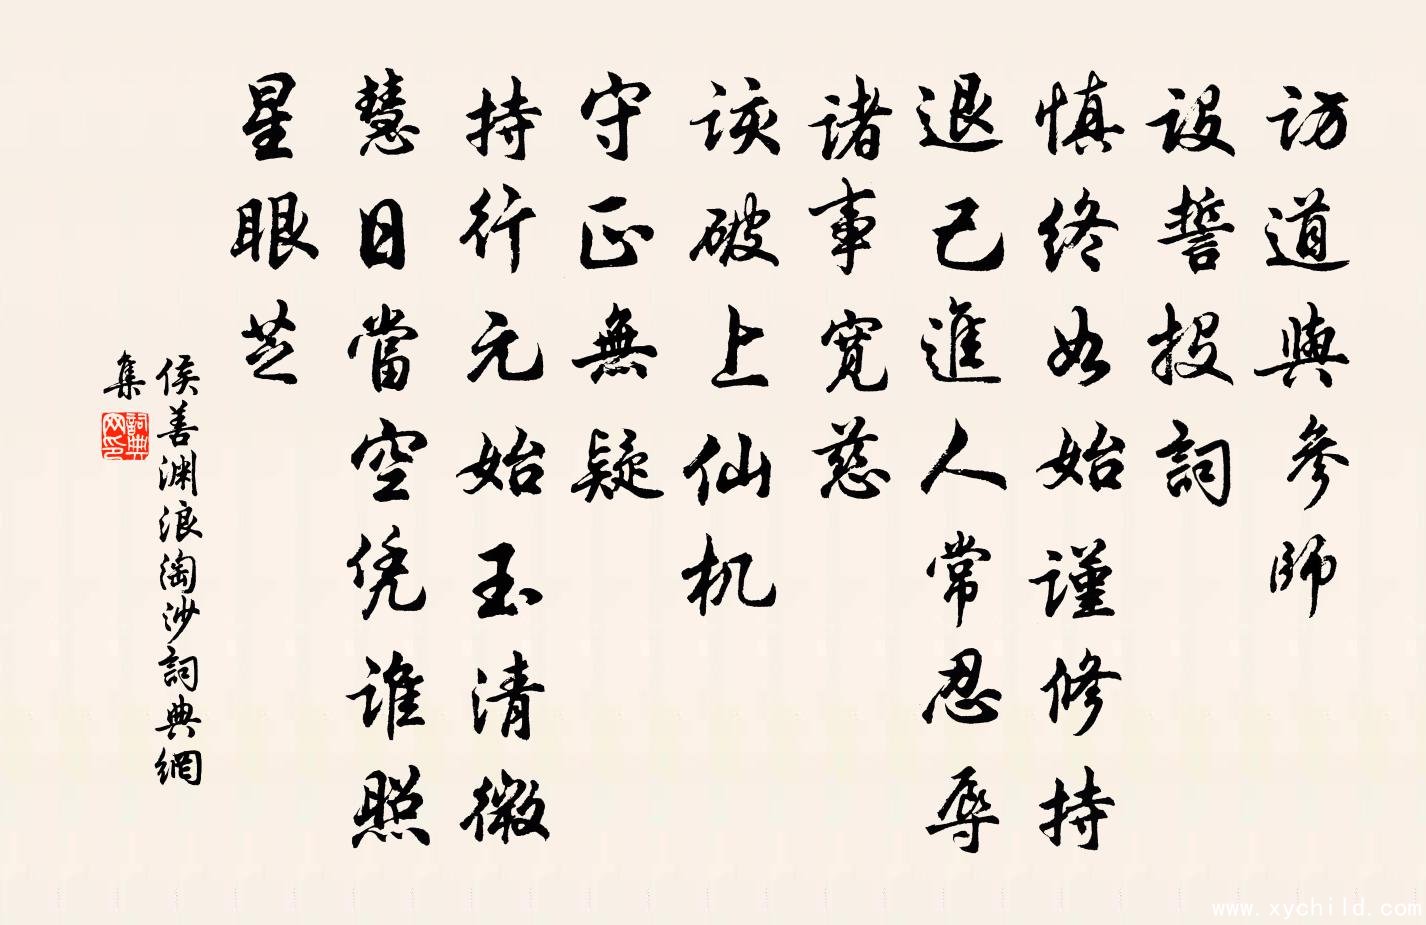 訪道與參師
設誓投詞
慎終如始謹修持
退己進人常忍辱
諸事寬慈
該破上仙机
守正無疑
持行元始玉清微
慧日當空凭谁照
星眼芝
侯善渊浪淘沙詞典網
集
詞典
网印
www.xychild.com